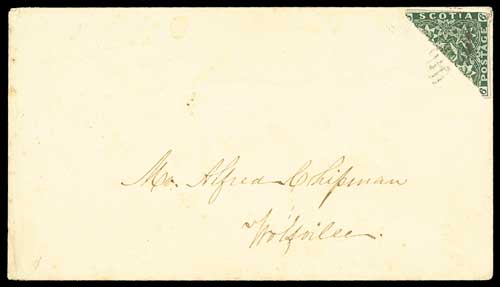 SCOTIA
POSTAGE
Mr. Alfred Chipman
Wolfville.